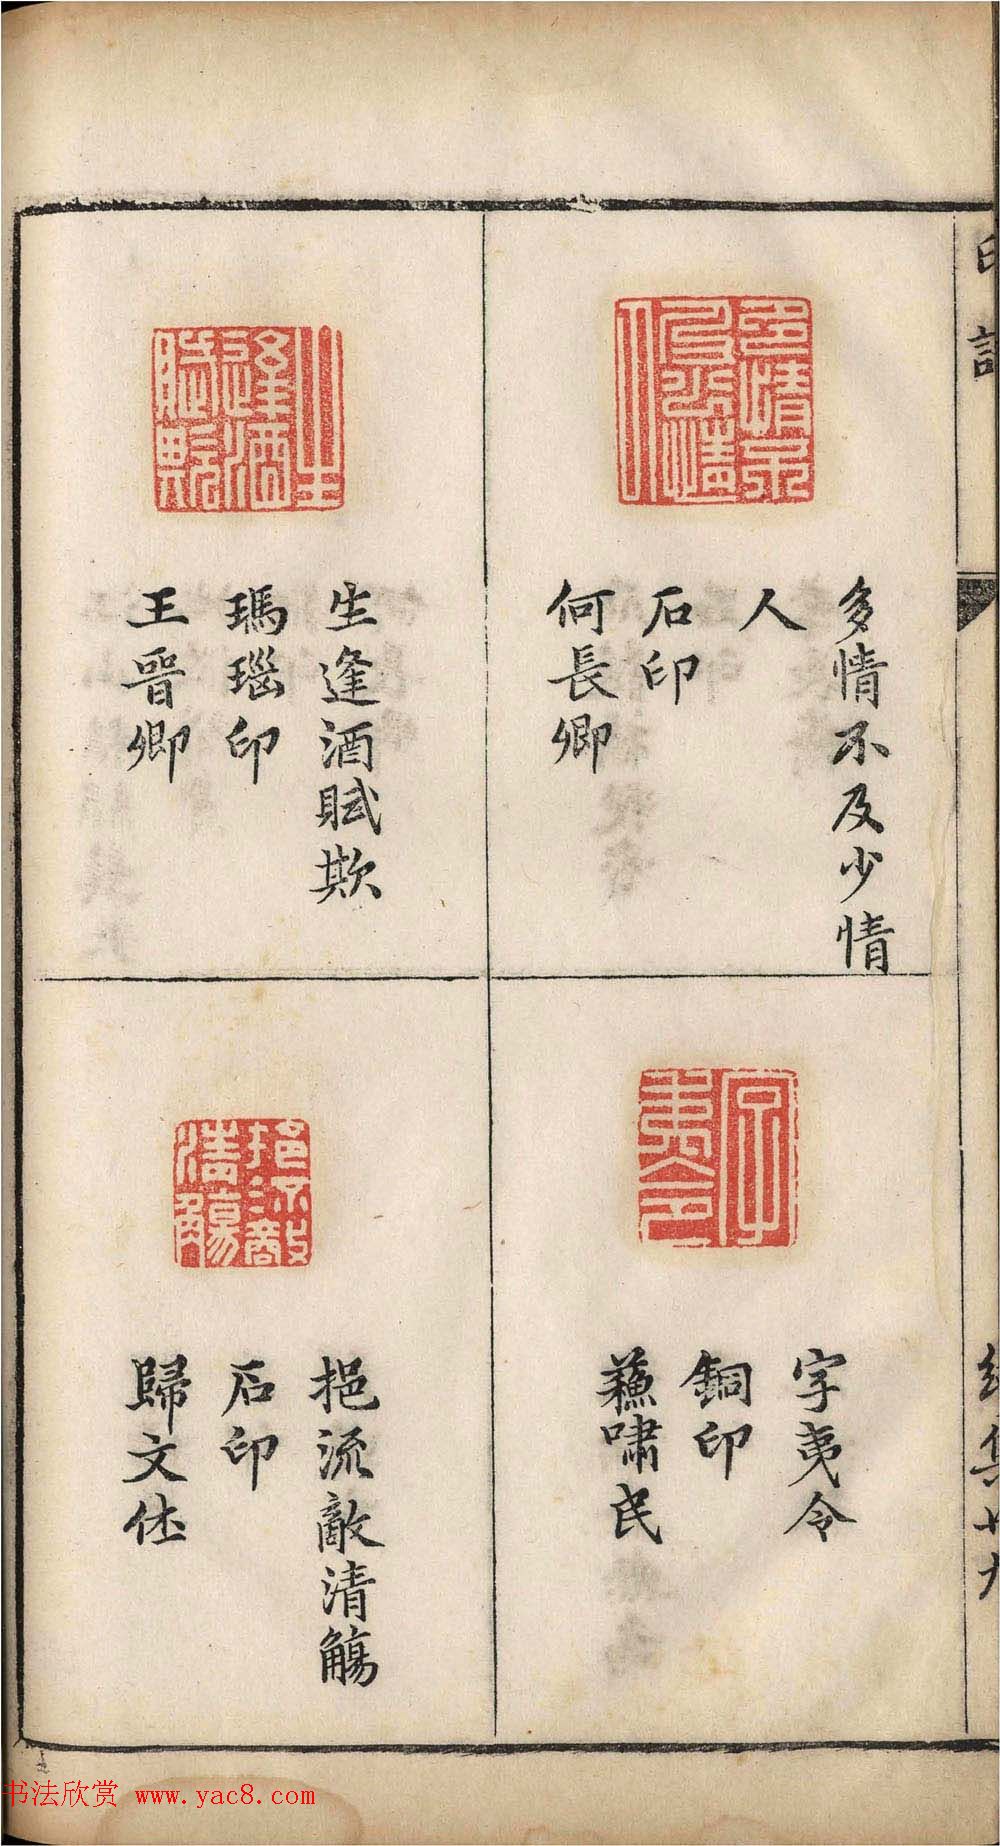 多情不及少情
人
石印
何長卿
字夷令
銅印
蘓嘯民
生逢酒賦欺
瑪瑙印
王晉卿
挹流敵清觴
石印
歸文休
书法欣赏 www.yac8.com